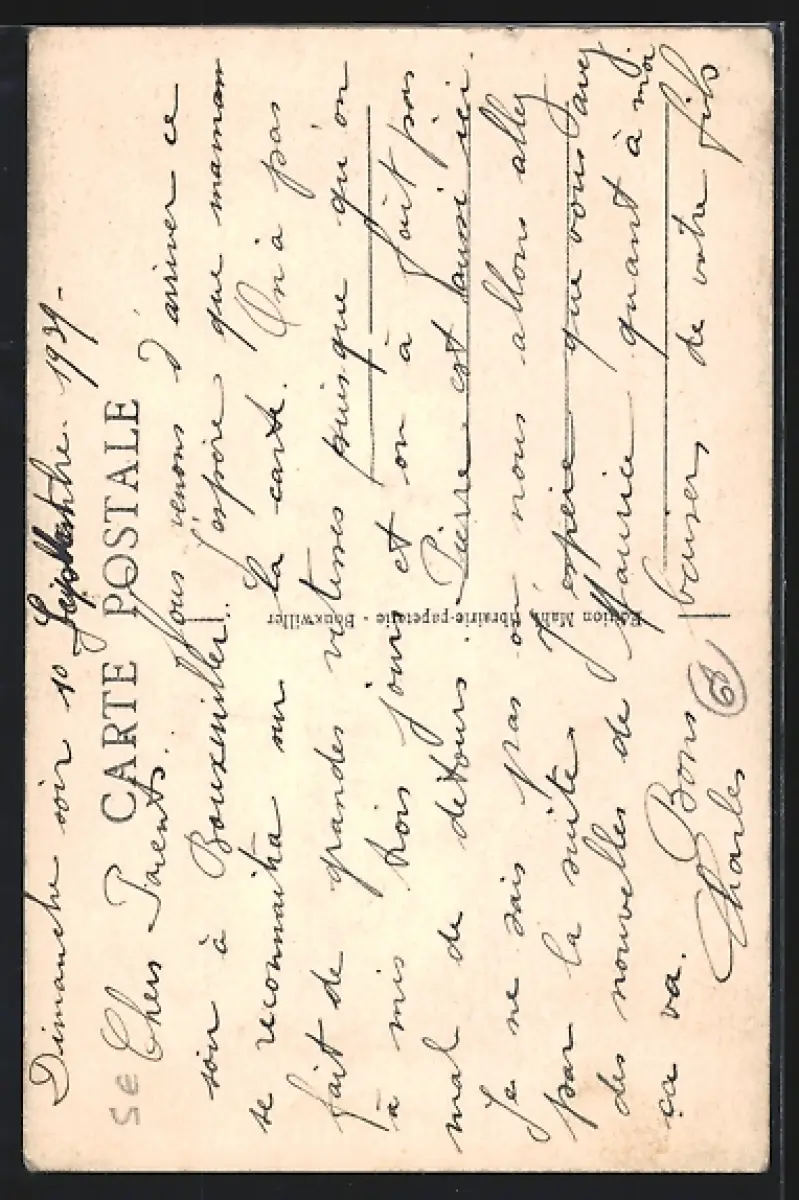 Dimanche soir 10 Septembre. 1939-
CARTE POSTALE
Chers Parents.
Nous venons d'arriver ce
soir à Bouxwiller. J'espère que maman
se reconnaitra sur la carte. On a pas
fait de grandes vitesses puisque qu'on
à mis trois jours et on à fait pas
mal de detours. Pierre est aussi ici.
Je ne sais pas où nous allons aller
par la suite. J'espère que vous avez
des nouvelles de Maurice quant à moi
ça va.
Bons baisers de votre fils
Charles
Edition Mahl, librairie-papeterie - Bouxwiller
SE